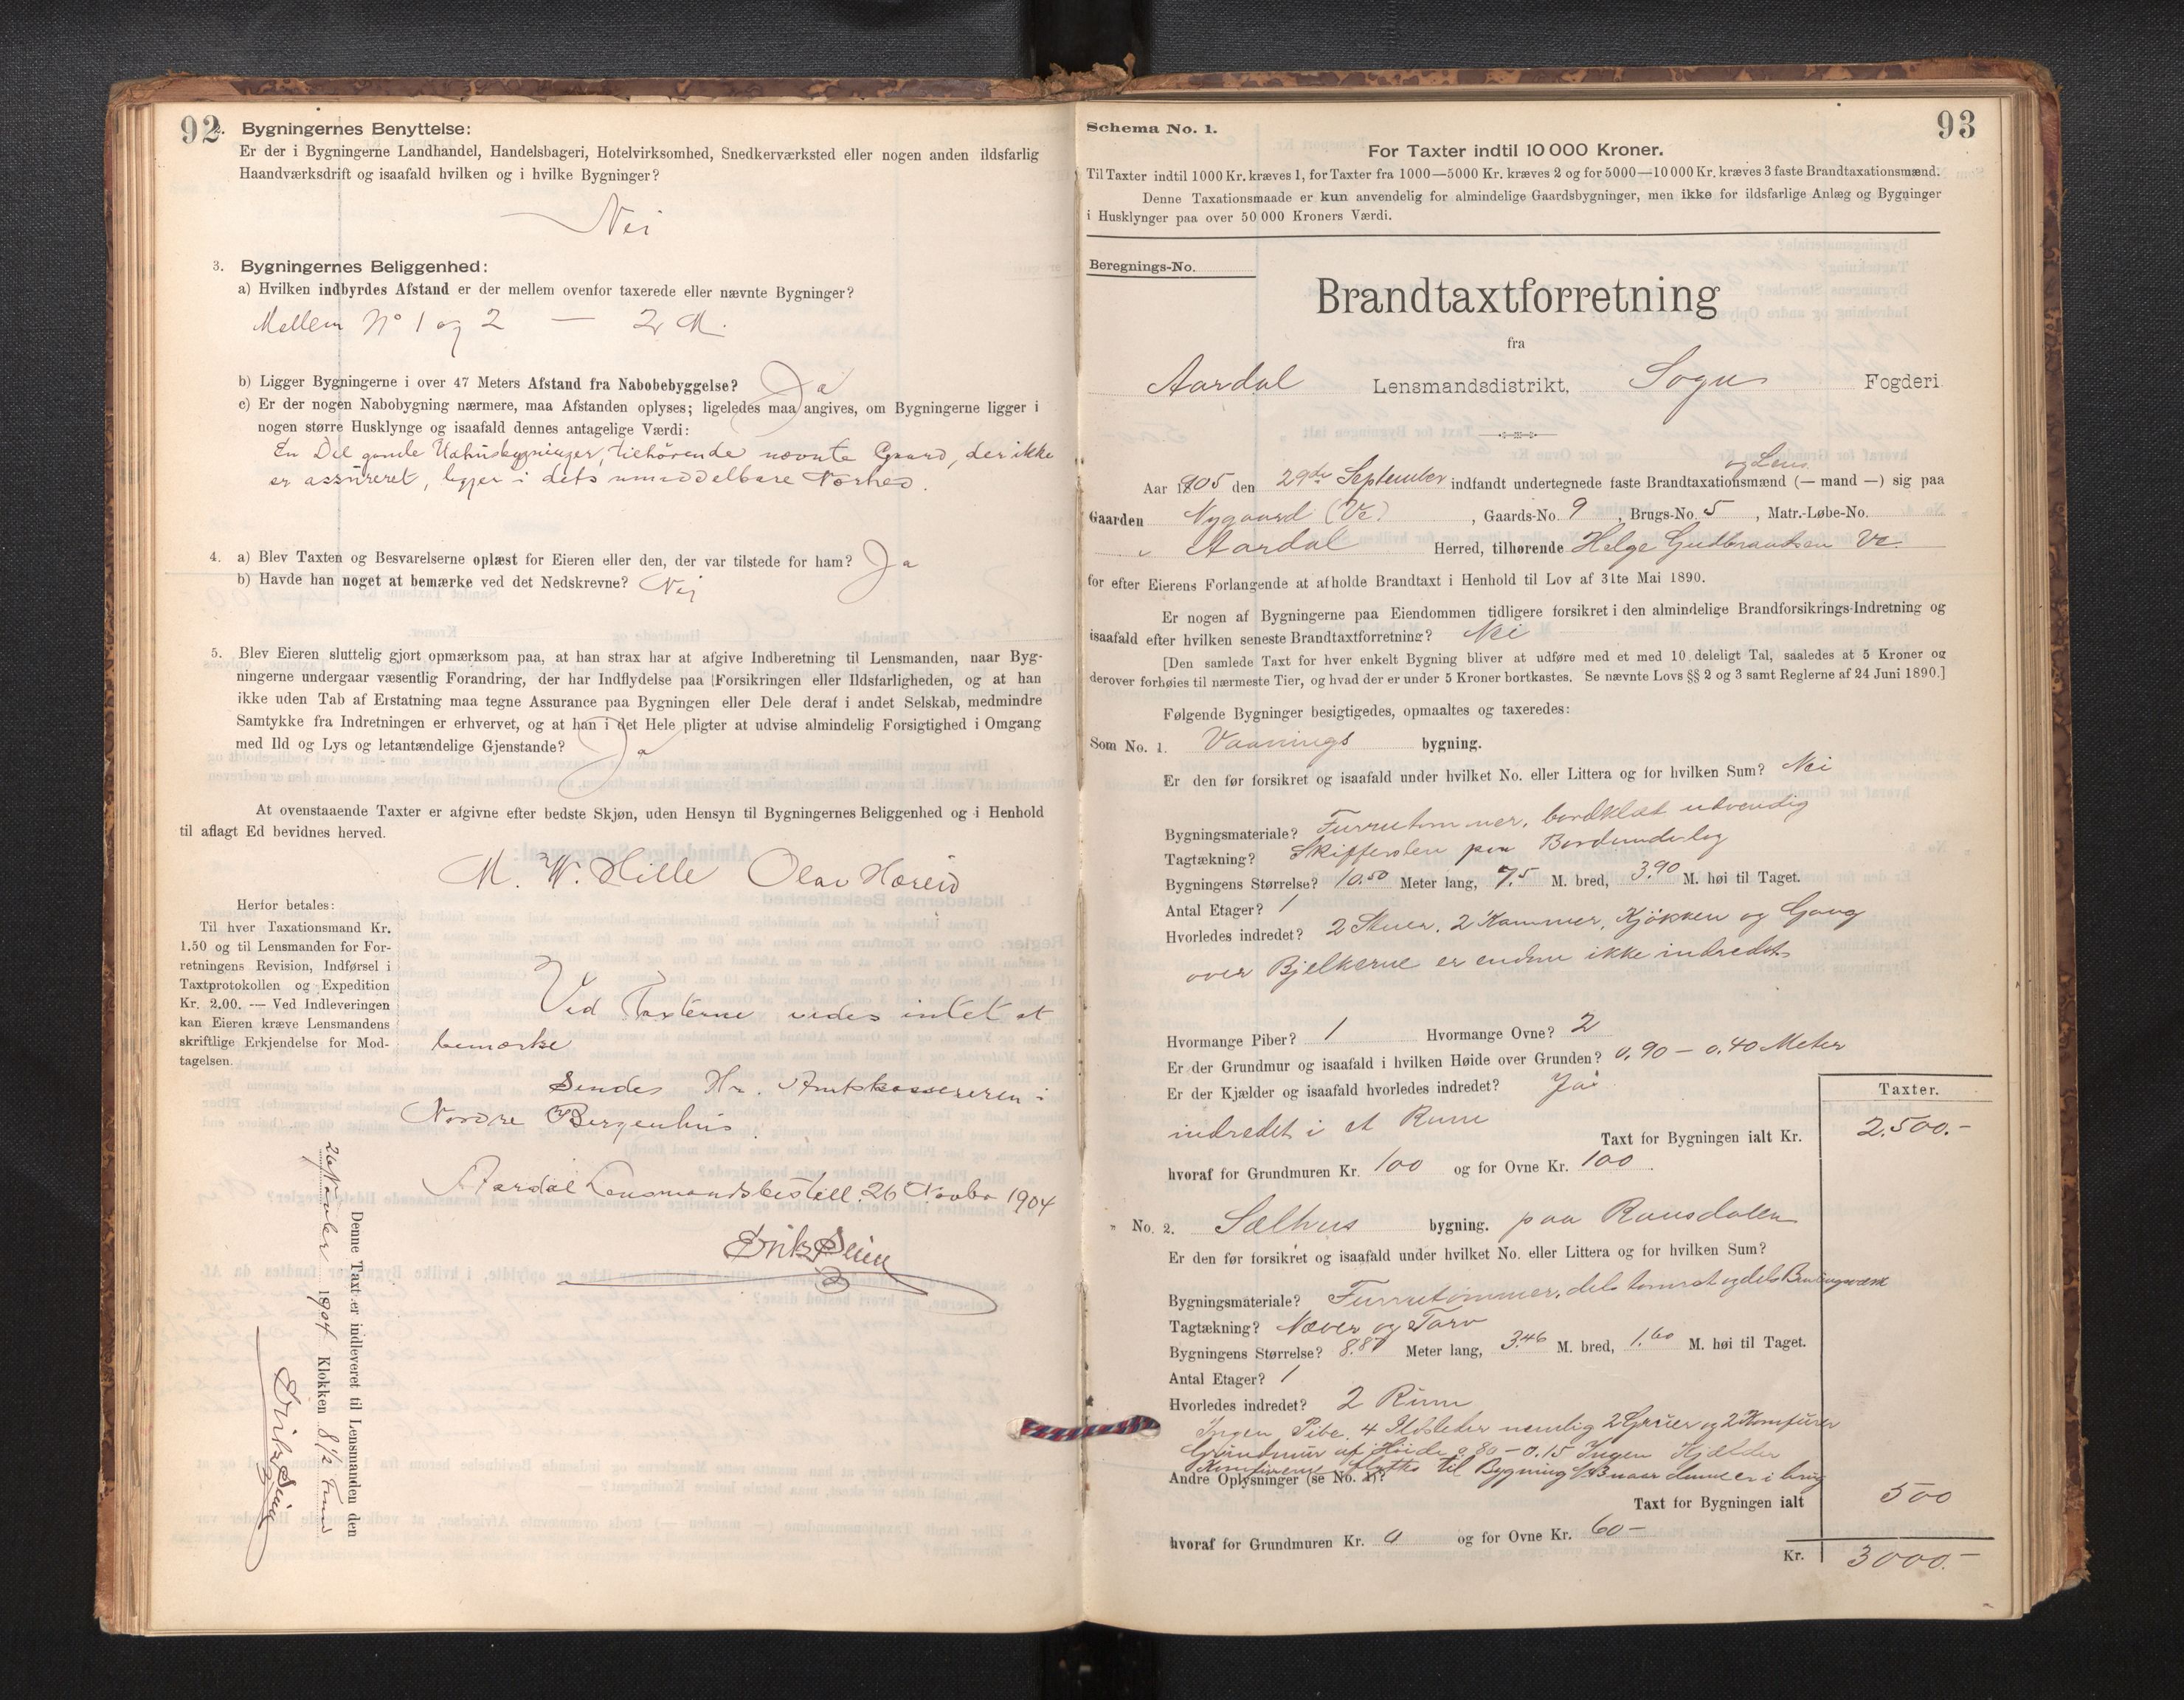 92
2. Bygningernes Benyttelse:
Er der i Bygningerne Landhandel, Handelsbageri, Hotelvirksomhed, Snedkerværksted eller nogen anden ildsfarlig
Haandværksdrift og isaafald hvilken og i hvilke Bygninger?
Nei
3. Bygningernes Beliggenhed:
a) Hvilken indbyrdes Afstand er der mellem ovenfor taxerede eller nævnte Bygninger?
Mellem No 1 og 2 — 2 M.
b) Ligger Bygningerne i over 47 Meters Afstand fra Nabobebyggelse? Ja
c) Er der nogen Nabobygning nærmere, maa Afstanden oplyses; ligeledes maa angives, om Bygningerne ligger i
nogen større Husklynge og isaafald dennes antagelige Værdi:
En Del gamle Udhusbygninger, tilhørende nævnte Gaard, der ikke
er assureret, ligger i dets umiddelbare Nærhed.
4. a) Blev Taxten og Besvarelserne oplæst for Eieren eller den, der var tilstede for ham? Ja
b) Havde han noget at bemærke ved det Nedskrevne? Nei
5. Blev Eieren sluttelig gjort opmærksom paa, at han strax har at afgive Indberetning til Lensmanden, naar Byg-
ningerne undergaar væsentlig Forandring, der har Indflydelse paa Forsikringen eller Ildsfarligheden, og at han
ikke uden Tab af Erstatning maa tegne Assurance paa Bygningen eller Dele deraf i andet Selskab, medmindre
Samtykke fra Indretningen er erhvervet, og at han i det Hele pligter at udvise almindelig Forsigtighed i Omgang
med Ild og Lys og letantændelige Gjenstande? Ja
At ovenstaaende Taxter er afgivne efter bedste Skjøn, uden Hensyn til Bygningernes Beliggenhed og i Henhold
til aflagt Ed bevidnes herved.
M. W. Hille Olav Hæreid
Herfor betales:
Til hver Taxationsmand Kr.
1.50 og til Lensmanden for For-
retningens Revision, Indførsel i
Taxtprotokollen og Expedition
Kr. 2.00. — Ved Indleveringen
kan Eieren kræve Lensmandens
skriftlige Erkjendelse for Mod-
tagelsen.
Ved Taxterne vides intet at
bemærke
Sendes Hr. Amtskassereren i
Nordre Bergenhus.
Aardal Lensmandsbestill. 26 Novbr 1904
Denne Taxt er indleveret til Lensmanden den
26 November 1904 Klokken 8 1/2 Fmd
93
Schema No. 1.
For Taxter indtil 10 000 Kroner.
Til Taxter indtil 1000 Kr. kræves 1, for Taxter fra 1000—5000 Kr. kræves 2 og for 5000—10 000 Kr. kræves 3 faste Brandtaxationsmænd.
Denne Taxationsmaade er kun anvendelig for almindelige Gaardsbygninger, men ikke for ildsfarlige Anlæg og Bygninger
i Husklynger paa over 50 000 Kroners Værdi.
Beregnings-No.
Brandtaxtforretning
fra
Aardal Lensmandsdistrikt, Sogns Fogderi
og Lens.
Aar 1905 den 29de September indfandt undertegnede faste Brandtaxationsmænd (— mand —) sig paa
Gaarden Nygaard (Ve), Gaards-No. 9, Brugs-No. 5, Matr.-Løbe-No.
i Aardal Herred, tilhørende Helge Gudbrandsen Ve
for efter Eierens Forlangende at afholde Brandtaxt i Henhold til Lov af 31te Mai 1890.
Er nogen af Bygningerne paa Eiendommen tidligere forsikret i den almindelige Brandforsikrings-Indretning og
isaafald efter hvilken seneste Brandtaxtforretning? Nei
[Den samlede Taxt for hver enkelt Bygning bliver at udføre med et med 10 deleligt Tal, saaledes at 5 Kroner og
derover forhøies til nærmeste Tier, og hvad der er under 5 Kroner bortkastes. Se nævnte Lovs §§ 2 og 3 samt Reglerne af 24 Juni 1890.]
Følgende Bygninger besigtigedes, opmaaltes og taxeredes:
Som No. 1. Vaanings bygning.
Er den før forsikret og isaafald under hvilket No. eller Littera og for hvilken Sum? Nei
Bygningsmateriale? Furrutømmer, bordklæt udvendig
Tagtækning? Skiffersten paa Bordunderlag
Bygningens Størrelse? 10.50 Meter lang, 7.5 M. bred, 3.90 M. høi til Taget.
Antal Etager? 1
Hvorledes indredet? 2 Stuer, 2 Kammer, Kjøkken og Gang
over Bjelkerne er endnu ikke indredet
Hvormange Piber? 1 Hvormange Ovne? 2
Er der Grundmur og isaafald i hvilken Høide over Grunden? 0.90 — 0.40 Meter
Er der Kjælder og isaafald hvorledes indredet? Ja
indredet i et Rum
Taxter.
Taxt for Bygningen ialt Kr. 2.500.-
hvoraf for Grundmuren Kr. 100 og for Ovne Kr. 100.
" No. 2. Sælhus bygning. paa
Er den før forsikret og isaafald under hvilket No. eller Littera og for hvilken Sum?
Bygningsmateriale? Furrutømmer, dels tømret og dels Bindingsværk
Tagtækning? Næver og Tørv
Bygningens Størrelse? 8.87 Meter lang, 3.46 M. bred, 1.60 M. høi til Taget.
Antal Etager? 1
Hvorledes indredet? 2 Rum
Ingen Pibe, 4 Ildsteder nemlig 2 Gruer og 2 Komfurer
Grundmur af Høide 0.80 — 0.15 Ingen Kjælder
Komfurene flyttes til Bygning naar denne er i brug
Andre Oplysninger (se No. 1)?
Taxt for Bygningen ialt 500
hvoraf for Grundmuren Kr. 0 og for Ovne Kr. 60 -
Kr. 3000.-